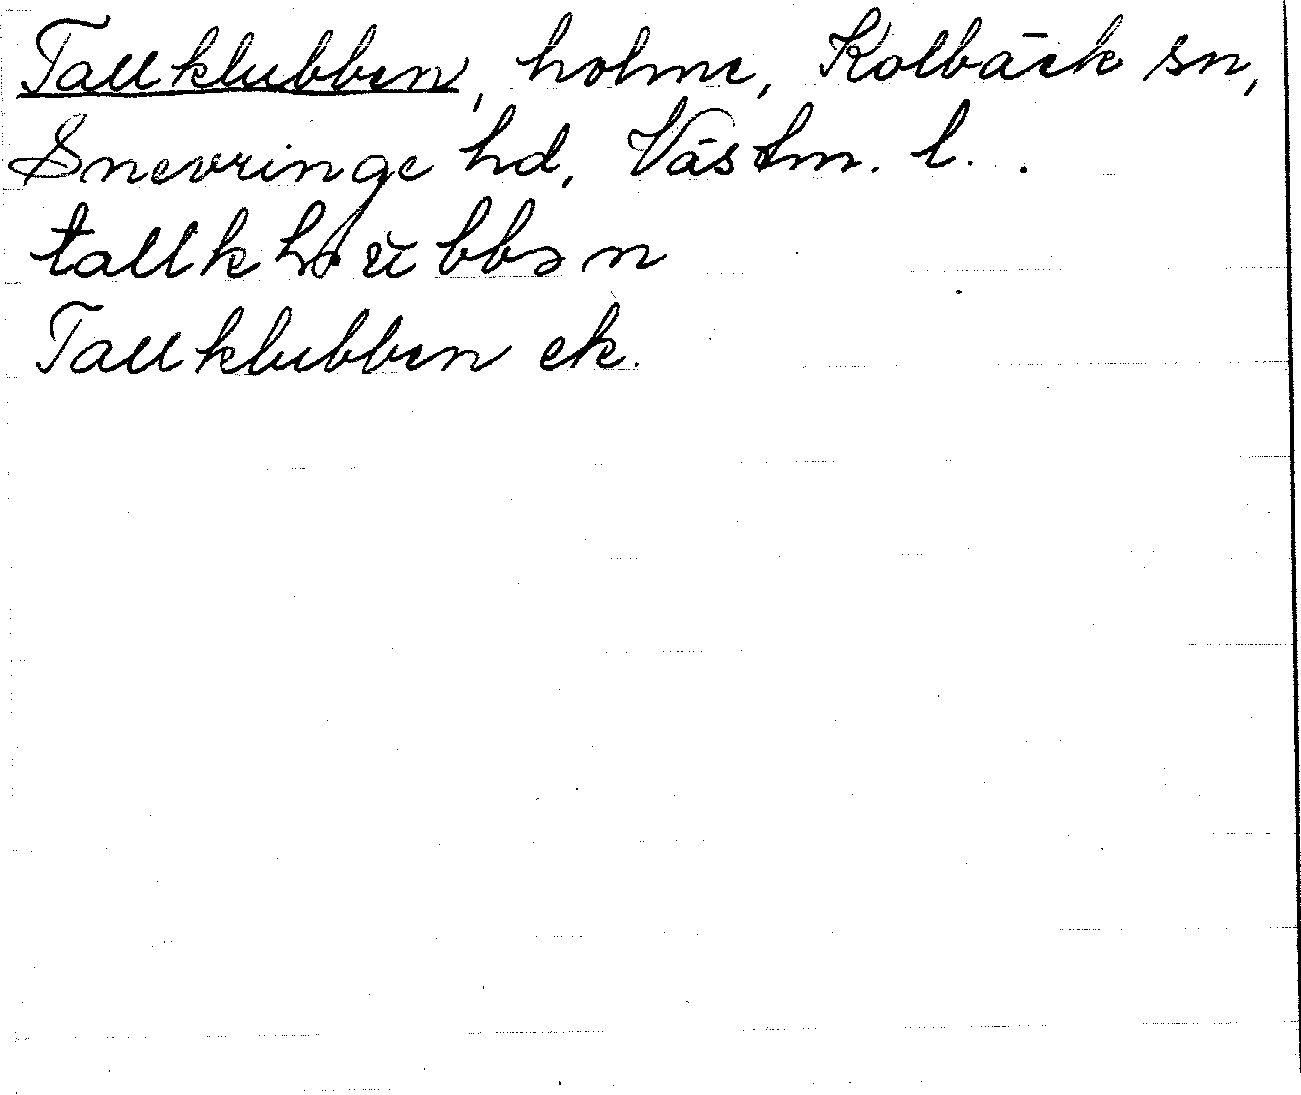 Tallklubben, holme, Kolbäck sn,
Snevringe hd, Västm. l. .
Tallklubben ek.